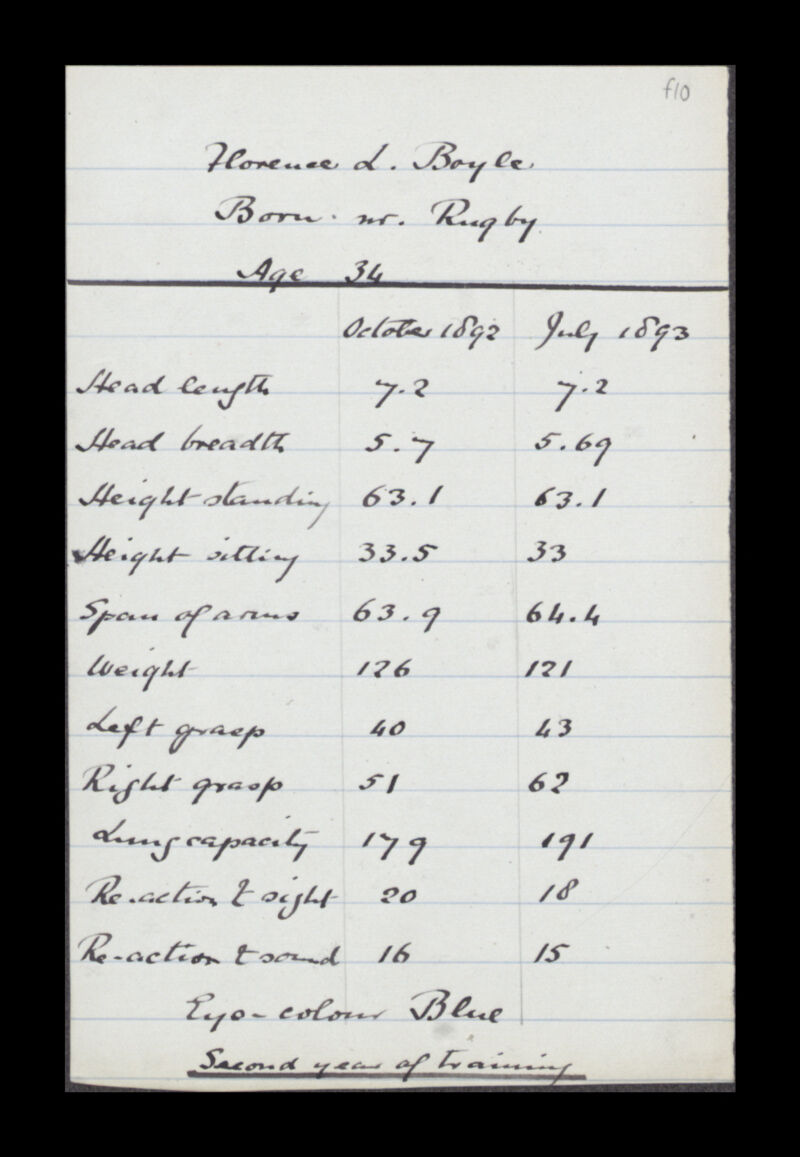 f10
Florence L. Boyle
Born nr. Rugby
Age 34
October 1892 July 1893
Head length 7.2 7.2
Head breadth 5.7 5.69
Height standing 63.1 63.1
Height sitting 33.5 33
Span of arms 63.9 64.4
Weight 126 121
Left grasp 40 43
Right grasp 51 62
Lung capacity 179 191
Re-action to sight 20 18
Re-action to sound 16 15
Eye-colour Blue
Second year of training